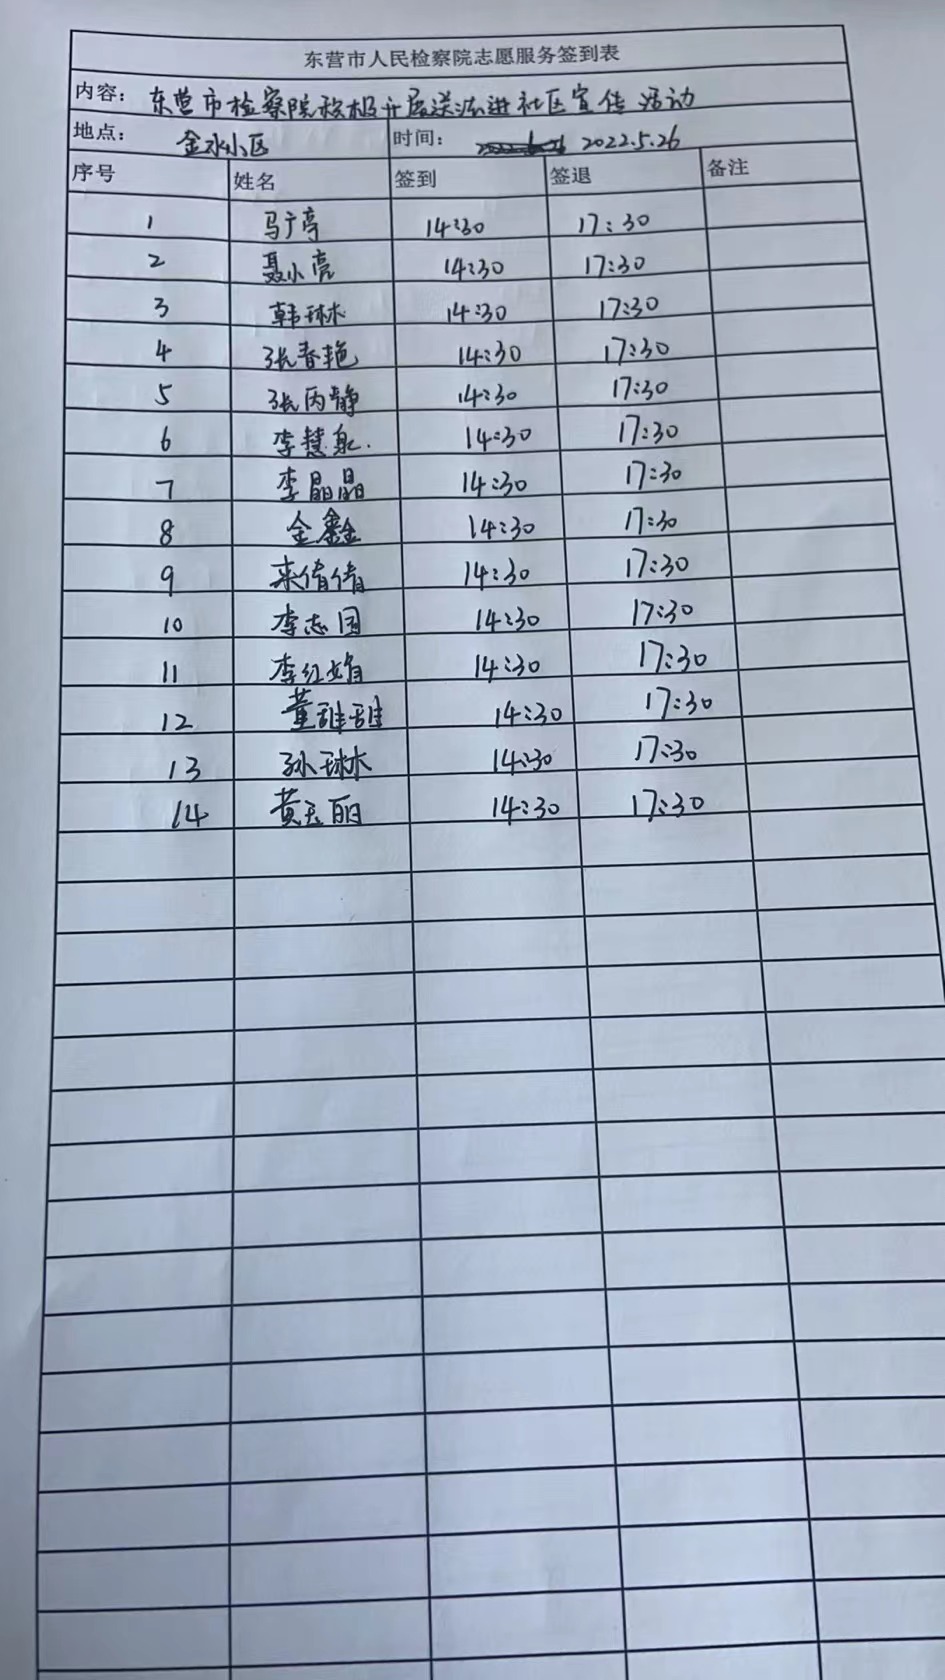 东营市人民检察院志愿服务签到表
内容： 东营市检察院积极开展送法进社区宣传活动
地点： 金水小区 时间： 2022.5.26
序号 姓名 签到 签退 备注
1 马广亭 14:30 17:30
2 聂小亮 14:30 17:30
3 韩琳 14:30 17:30
4 张春艳 14:30 17:30
5 张丙静 14:30 17:30
6 李慧泉 14:30 17:30
7 李晶晶 14:30 17:30
8 金鑫 14:30 17:30
9 来倩倩 14:30 17:30
10 李志国 14:30 17:30
11 李红娟 14:30 17:30
12 董甜甜 14:30 17:30
13 孙琳 14:30 17:30
14 黄玉丽 14:30 17:30